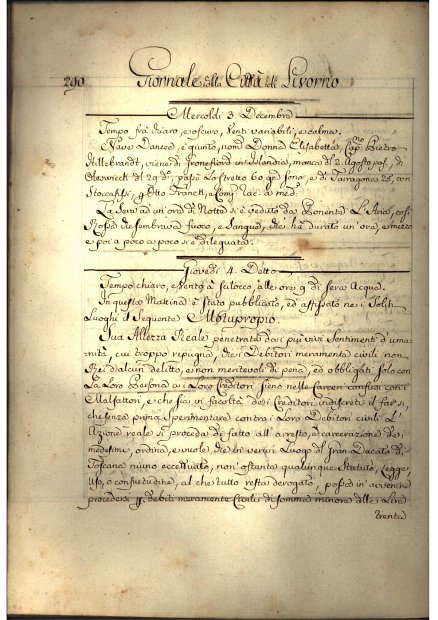 290 Giornale della Città di Livorno
Mercoldì 3. Decembre
Tempo frà chiaro, e oscuro, Venti variabili, e calma.
Nave Danese, è giunto, nom.ª Donna Elisabetta, Cap.no Pietro
Hillebrandt, viene di in Islandia, manca dl 2. Agosto pas., di
dl 29 d.º, passò Lo stretto 60 gr.i sono, e di Tarragona 26, con
Stoccafissi, Otto Franck, e Comp. rac. a med.
La Sera ad un'ora di Notte si è veduto da Ponente L'Aria, così
Rossa che sembrava fuoco, e Sangue, che ha durato un'ora, e mezzo
e poi a poco a poco si è dileguata.
Giovedì 4. Detto
Tempo chiaro, e Vento a Scilocco, alle ore 9 di sera Acqua.
In questa Mattina è stato pubblicato, ed affissato nei Soliti
Luoghi il Sequente Motuproprio
Sua Altezza Reale penetrata da i più vivi Sentimenti d'uma-
nità, cui troppo repugna, che i Debitori meramente civili non
Rei d'alcun delitto, e non meritevoli di pena, ed obbligati solo con
La Loro Persona ai Loro Creditori, sieno nelle Carceri confusi con i
Malfattori, e che sia in facoltà dei Creditori indiscreti il far sì
che senza prima sperimentare contro i Loro Debitori civili L'
Azione reale si proceda di fatto all'arresto, e carcerazione dei
medesimi, ordina, e vuole che in verun Luogo del Gran-Ducato di
Toscana niuno eccettuato, non ostante qualunque Statuto, Legge,
Uso, o consuetudine, al che tutto resta derogato, possa in avvenire
procedersi p. debiti meramente Civili di somma minore alle Lire
trenta